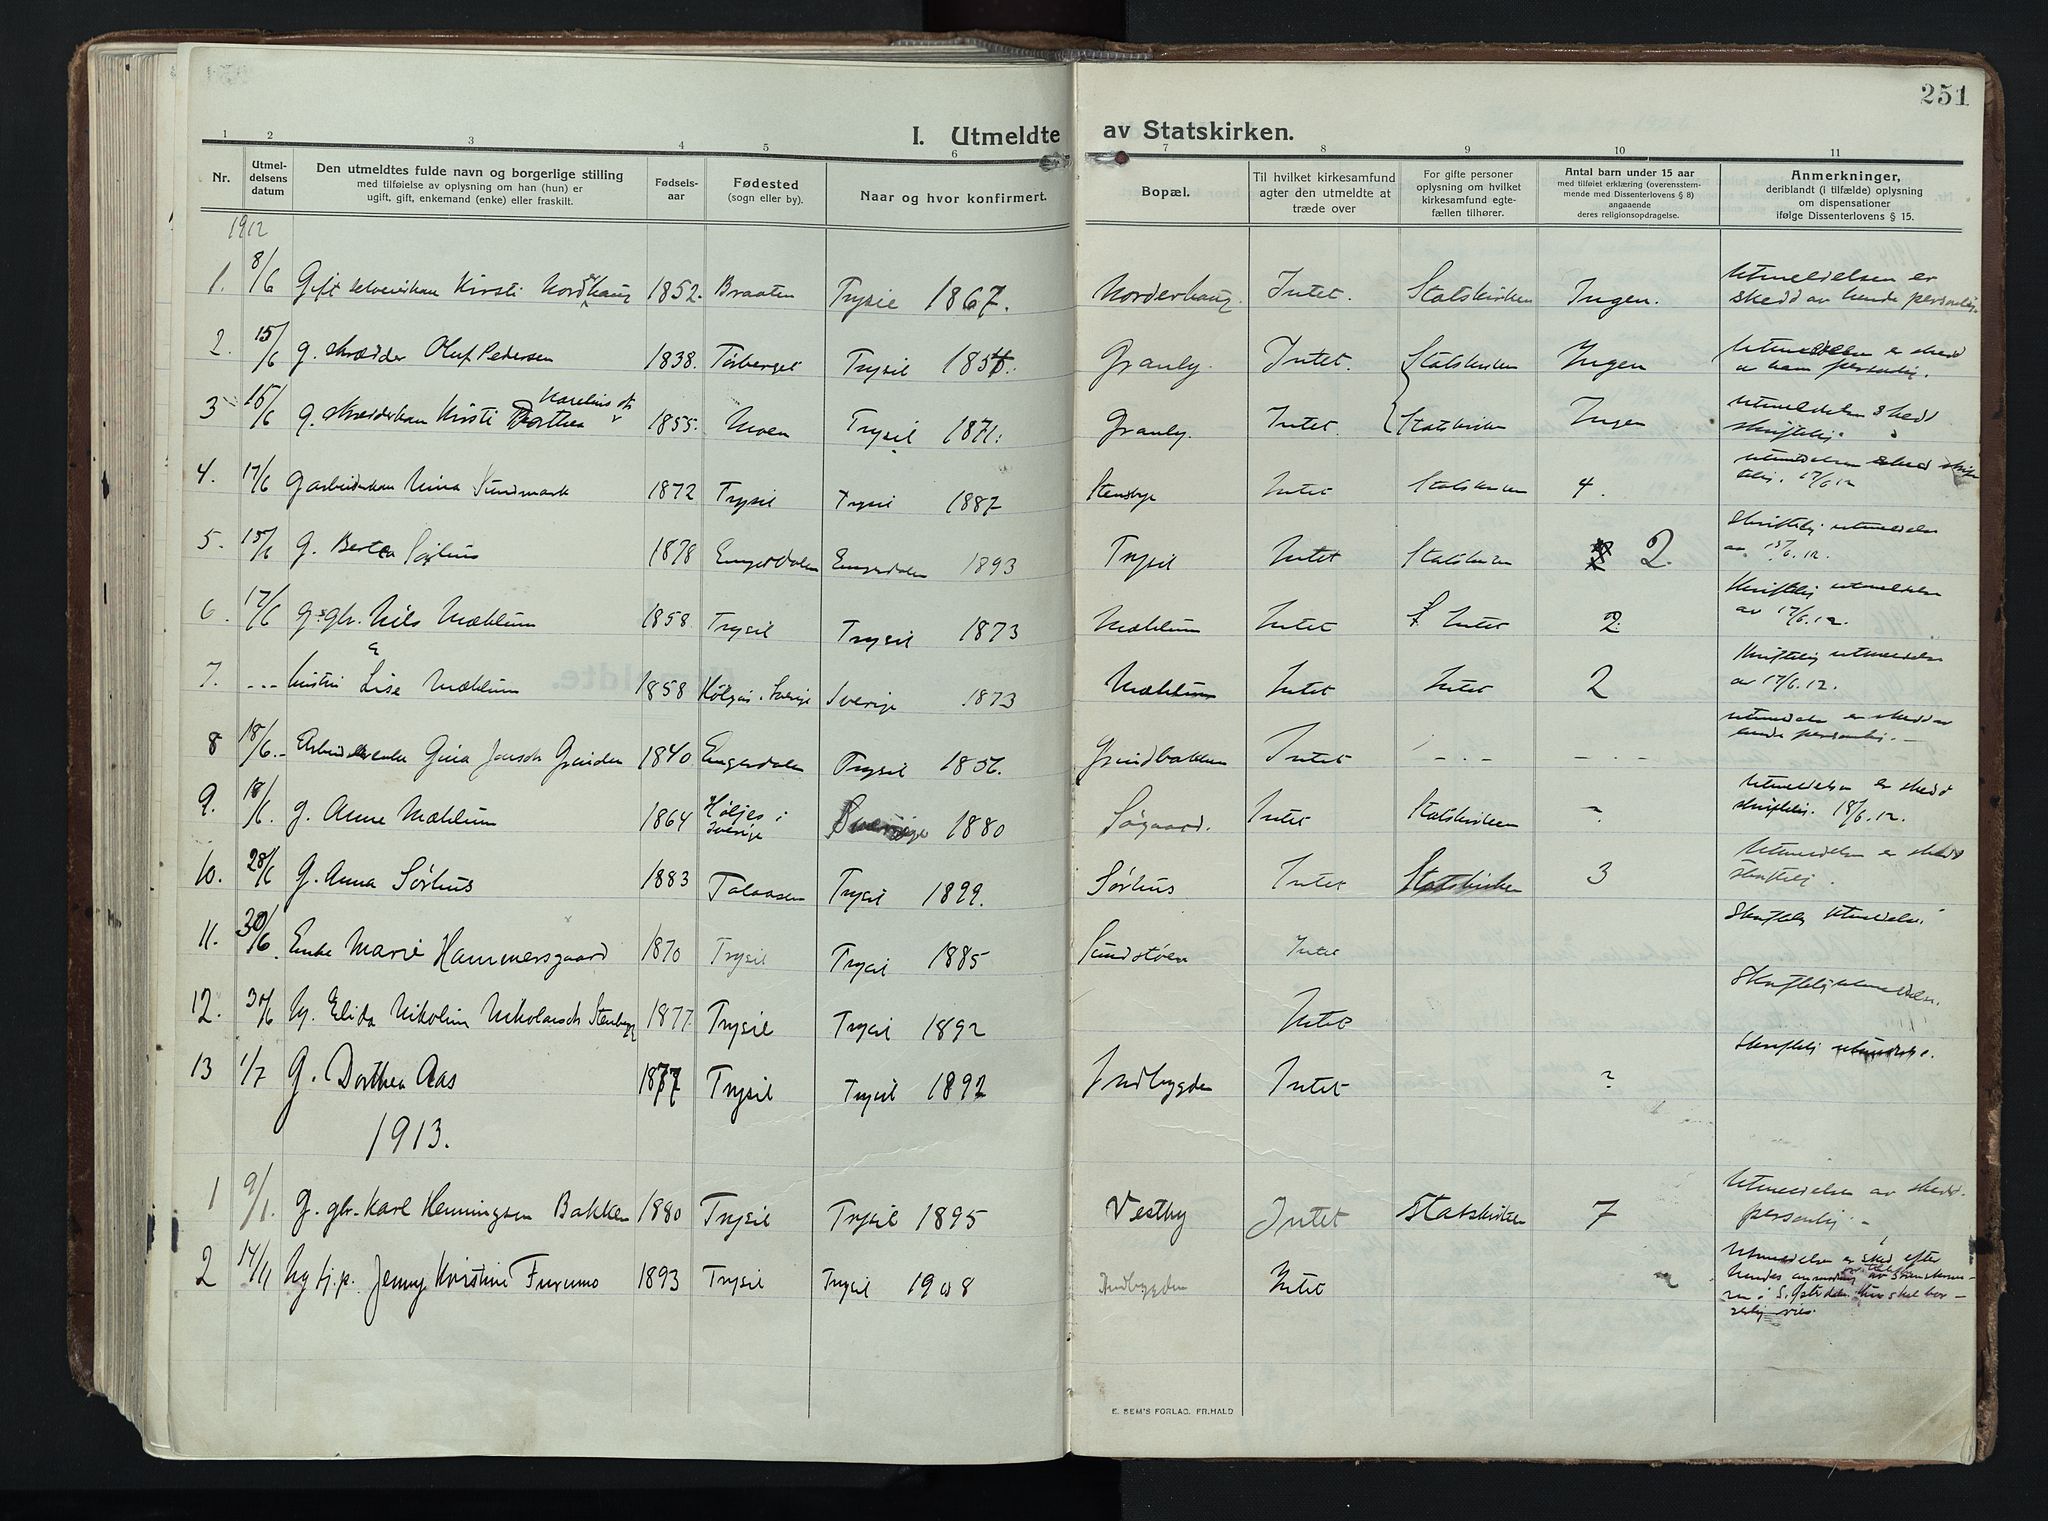 251
I. Utmeldte av Statskirken.
1 2 3 4 5 6 7 8 9 10 11
Nr.
Utmel-
delsens
datum
Den utmeldtes fulde navn og borgerlige stilling
med tilføielse av oplysning om han (hun) er
ugift, gift, enkemand (enke) eller fraskilt.
Fødsels-
aar
Fødested
(sogn eller by).
Naar og hvor konfirmert.
Bopæl.
Til hvilket kirkesamfund
agter den utmeldte at
træde over
For gifte personer
oplysning om hvilket
kirkesamfund egte-
fællen tilhører.
Antal barn under 15 aar
med tilføiet erklæring (overensstem-
mende med Dissenterlovens § 8)
angaaende
deres religionsopdragelse.
Anmerkninger,
deriblandt (i tilfælde) oplysning
om dispensationer
ifølge Dissenterlovens § 15.
1912
1. 8/6 Gift Kirsti Nordhaug 1852. Braaten Trysil 1867. Norderhaug. Intet. Statskirken Ingen. Utmeldelsen er
skedd av hende personlig.
2. 15/6 g. skrædder Oluf Pedersen 1838. Tørberget Trysil Granly. Intet. Statskirken Ingen Utmeldelsen er skedd
av ham personlig.
3 15/6 g. Kirsti Dorthea 1855. Moen Trysil 1871. Granly. Intet. Statskirken Ingen utmeldelsen skedd
skriftelig.
4. 17/6 g arbeiderkone Nina Sundmark 1872 Trysil Trysil 1887 Stensbye Intet Statskirken 4. utmeldelsen skedd skrif-
telig. 17/6 12
5. 15/6 g. Berta 1878 Engerdalen Engerdalen 1893 Trysil Intet Statskirken 2. Skriftelig utmeldelse
av 15/6. 12.
6. 17/6 Nils Mæhlum 1858 Trysil Trysil 1873 Mæhlum Intet Intet 2 Skriftelig utmeldelse
av 17/6.12.
7. --- hustru Lise Mæhlum 1858 Sverige Sverige 1873 Mæhlum Intet Intet 2 Skriftelig utmeldelse
av 17/6.12.
8 18/6.- Gina Jonsdr Grinden 1840 Engerdalen Trysil 1856. Grindbakken Intet -.- -.- utmeldelse er skedd av
ende personlig. -
9. 18/6. g. Anne Mæhlum 1864 Høljes i
Sverige Sverige 1880 Søgaard. Intet Statskirken ? Utmeldelsen er skedd
skriftelig. 18/6.12.
10. 28/6 G. Anna Sørhus 1883 Talaasen Trysil 1899. Sørhus Intet Statskirken 3 Utmeldelsen er skedd
skriftelig.
11. 30/6 Enke Marie Hammersgaard 1870 Trysil Trysil 1885 Sundstøen Intet Skriftelig Utmeldelse
12. 30/6 Elida Nikoline Nikolaisdr Stenbye 1877. Trysil Trysil 1892 Intet Skriftelig utmeldelse.
13 1/7 G. Dorthea Aas 1877 Trysil Trysil 1892 Indbygden Intet ? Skriftelig utmeldelse.
1913.
1 9/1. G. gbr. Karl Henningsen Bakken 1880 Trysil Trysil 1895 Vestby Intet Statskirken 7 Utmeldelsen av skedd.
personlig -
2 14/11 Ug tj.p. Jenny Kristine Furumo 1893 Trysil Trysil 1908 Indbygden Intet Utmeldelsen er sked efter
hendes
i
E. SEM'S FORLAG. FR. HALD